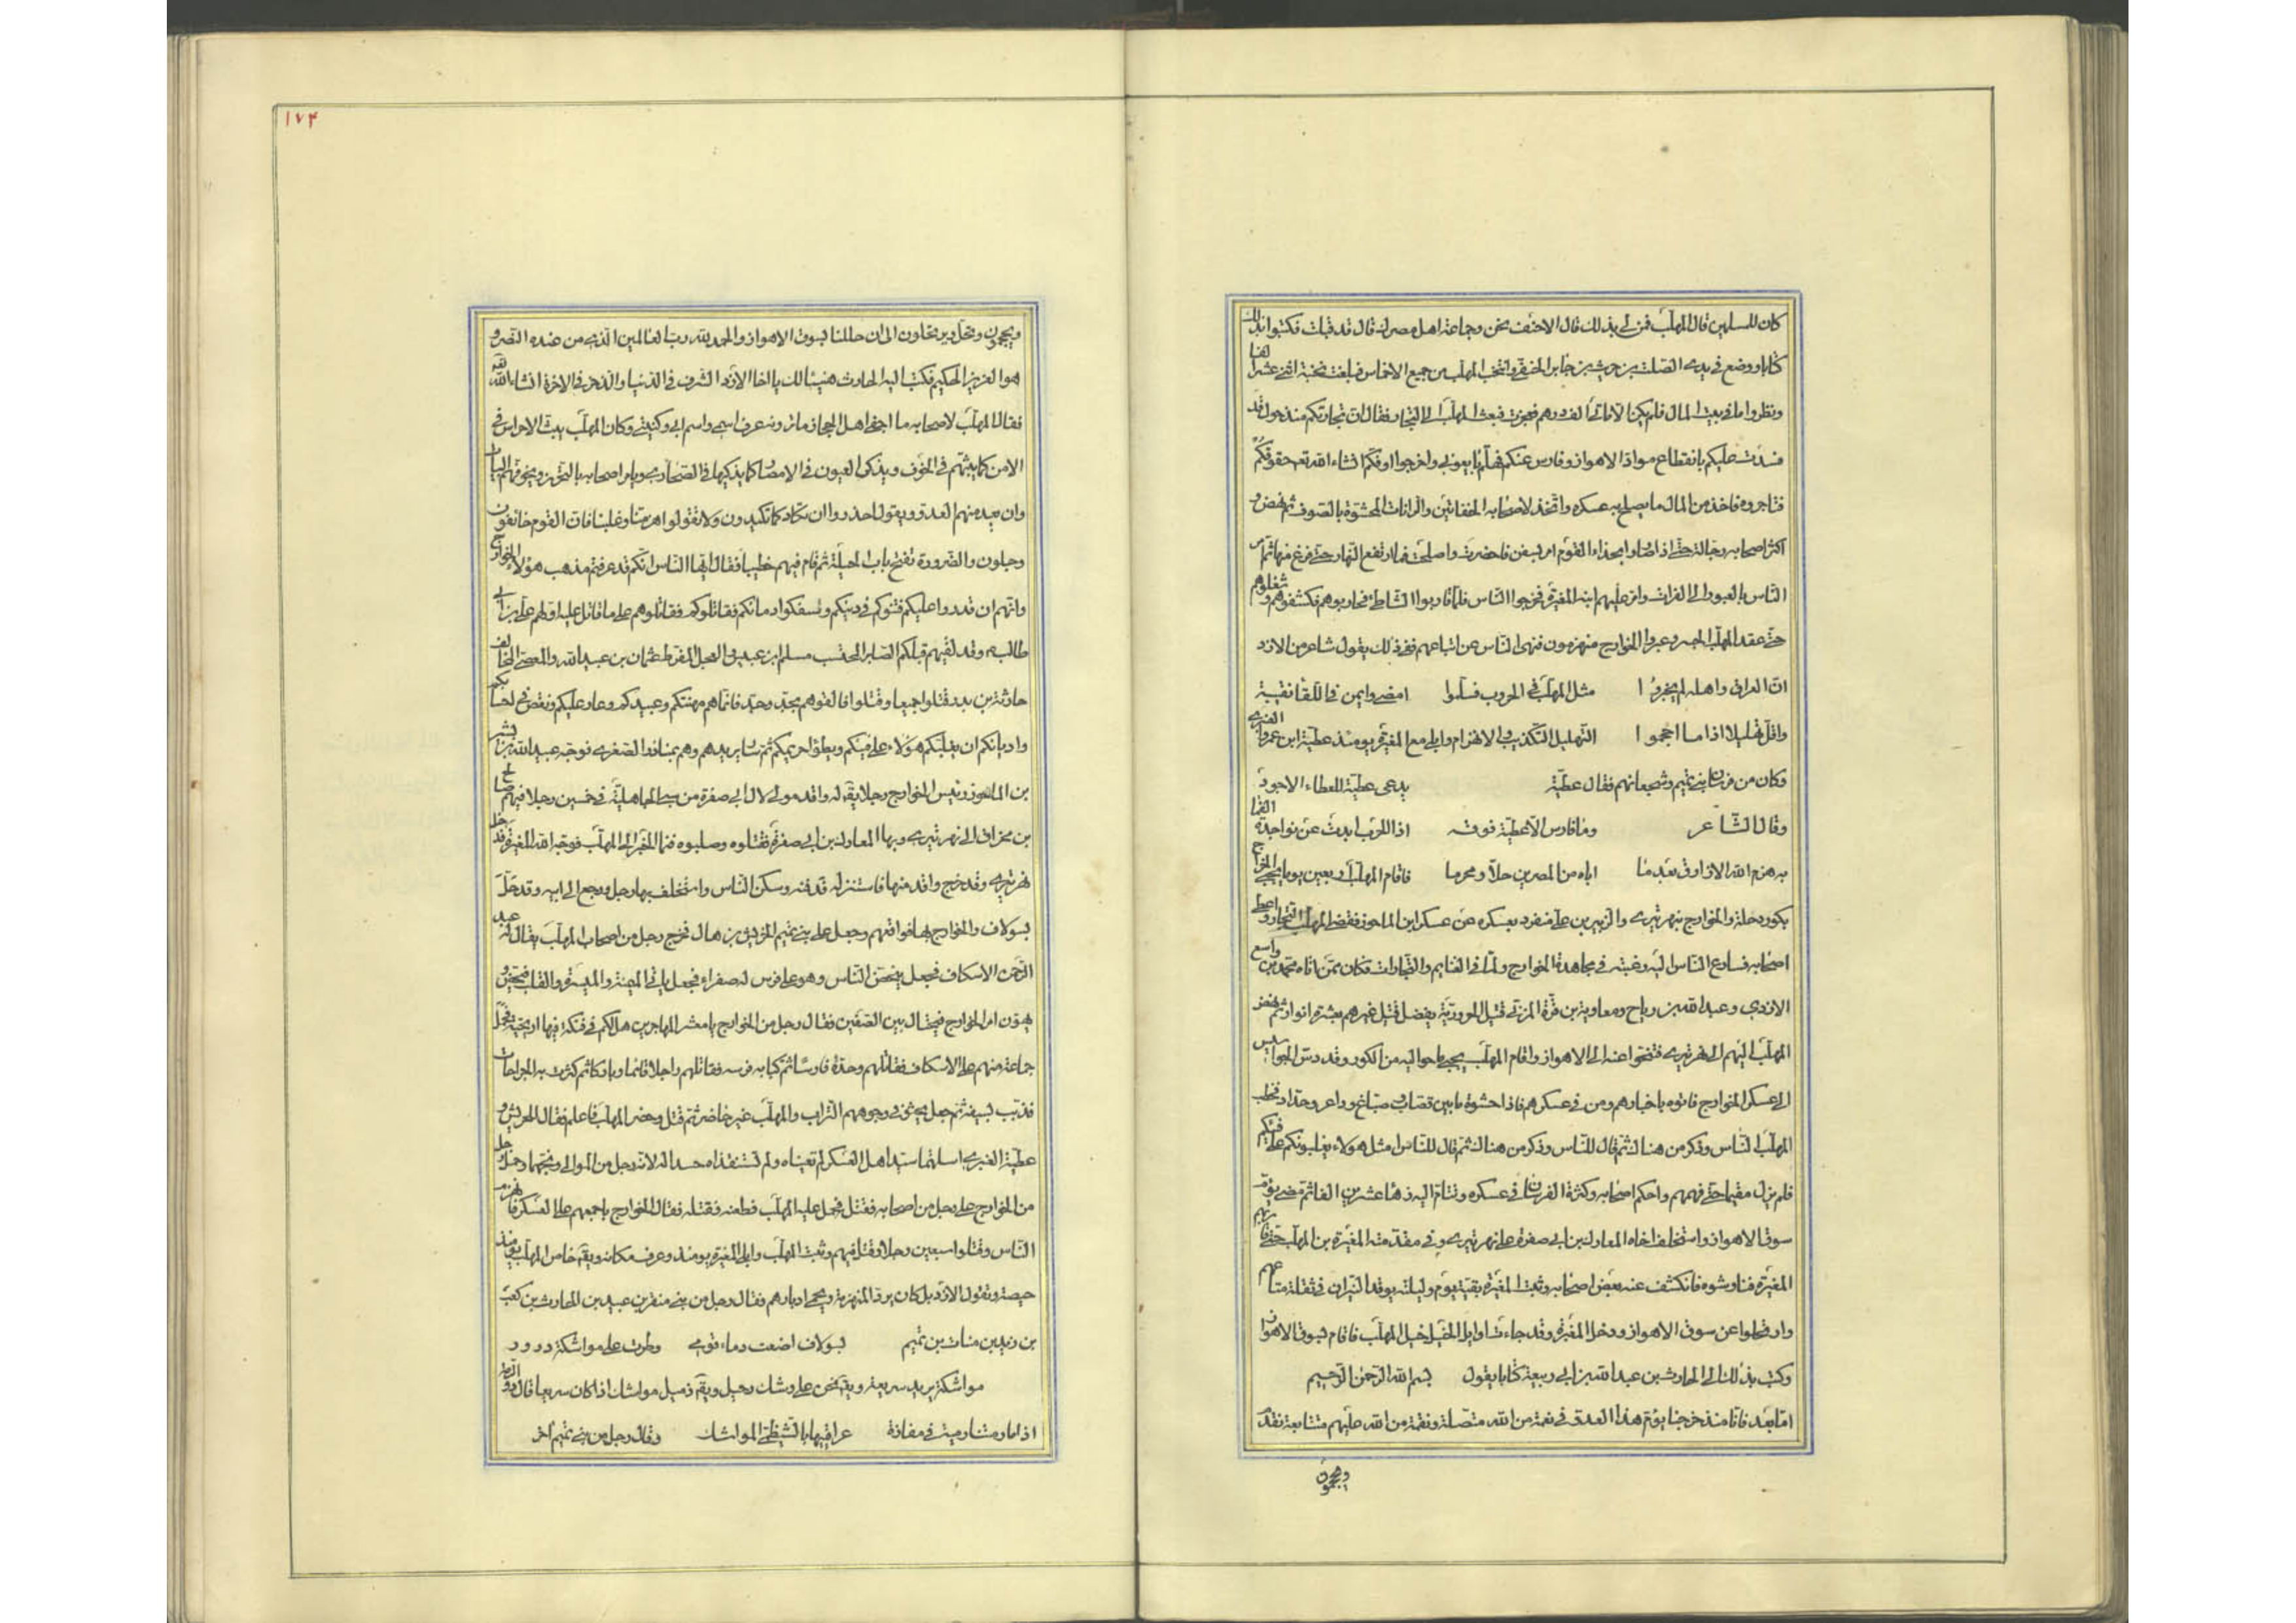 كان للمسلمين قال المهلّب فمن لي بذلك قال الاحنف نحن وجماعة اهل مصرك قال قد قبلت فكتبوا بذلك
كتابا ووضع في يدي الصلت بن حريث بن جابر الحنفي وانتخب المهلّب من جميع الاخماس فبلغت نخبته اثني عشر الفا
ونظروا ما في بيت المال فلم يكن الا مائتي الف درهم فعجزت فبعث المهلّب الى التجار وفقال ان تجارتكم منذ حول قد
فسدت عليكم بانقطاع مواد الاهواز وفارس عنكم فهلمّ بايعوني واخرجوا اوفكم انشاء الله تعم حقوقكم
فتاجروه فاخذ من المال ما يصلح به عسكره واتّخذ لاصحابه الخفاتين والرانات المحشوّة بالصوف ثم نهض و
اكثر اصحابه رجالة حتّى اذا صاروا بحذاء القوم امر بسفن فاحضرت واصلحت فما ارتفع النهار حتى فرغ منها ثم امر
النّاس بالعبور الى الفرات وامّر عليهم ابنه المغيرة فخرجوا النّاس فلمّا قاربوا الشّاطئ فحاربوهم فكشفوهم وشغلوهم
حتّى عقد المهلّب الجسر وعبروا والخوارج منهزمون فنهى النّاس عن اتباعهم ففي ذلك يقول شاعر من الازد
انّ العراق واهله لم يخبروا مثل المهلّب في الحروب فسلّموا امضى وايمن في اللقا نقيبة
واقل تهليلا اذا ما احجموا التهليل التكذيب والانهزام وابلى مع المغيرة يومئذ عطيّة ابن عمرو العنبري
وكان من فرسان بني تميم وشجعانهم فقال عطيّة يدعى عطيّة للعطاء الاجود
وقال الشّاعر وما فارس الّا عطيّة فوقه اذا الحرب ابدت عن نواجذها الفما
به هزم الله الازارق بعد ما اباه من المصرين حلّا ومحرما فاقام المهلّب اربعين يوما يجبي الخراج
بكور دجلة والخوارج بنهر تيرى والزبير بن علي منفرد بعسكره عن عسكر ابن الماحوز فقضى المهلّب التجار واعطى
اصحابه فسارع النّاس اليه رغبة في مجاهدة الخوارج ولما في الغنايم والتجارات فكان ممن اتاه محمد بن واسع
الازدي وعبد الله بن رياح ومعاوية بن قرّة المزني قتيل الحرورية يفضل قتيل غيرهم بعشرة انوار ثم نهض
المهلّب اليهم الى نهر تيرى فتنحّوا عنه الى الاهواز واقام المهلّب يجبي ما حواليه من الكور وقد دسّ الجواسيس
الى عسكر الخوارج فاتوه باخبارهم ومن في عسكرهم فاذا حشوة ما بين قصاب وصباغ وداعر وحدّاد فخطب
المهلّب النّاس وذكر من هناك ثم قال للنّاس وذكر من هناك ثم قال للنّاس امثل هولاء يغلبونكم على فيئكم
فلم يزل مقيما حتى فهمهم واحكم اصحابه وكثرت الفرسان في عسكره وتتامّ اليه زهاء عشرين الفا ثم مضى يؤمّ
سوق الاهواز واستخلف اخاه المعارك بن ابي صفرة على نهر تيرى وفي مقدمته المغيرة بن المهلّب حتى قاربهم
المغيرة فناوشوه فانكشف عنه بعض اصحابه وثبت المغيرة بقية يوم وليلته يوقد النيران
وارتحلوا عن سوق الاهواز ودخل المغيرة وقد جاءت اوايل الخيل خيل المهلّب فاقام بسوق الاهواز
وكتب بذلك الى الحارث بن عبد الله بن ابي ربيعة كتابا يقول بسم الله الرحمن الرحيم
امّا بعد فانّا منذ خرجنا نؤم هذا العدو في نعمة من الله متصلة ونقمة من الله عليهم متتابعة نقدم
ويحجمون
١٧٤
ويحجمون ونحلّ ويرتحلون الى ان حللنا بسوق الاهواز والحمد لله ربّ العالمين الذي من عنده النصر و
هو العزيز الحكيم فكتب اليه الحارث هنيئا لك يا اخا الازد الشرف في الدنيا والذخر في الاخرة انشاء الله
فقال المهلّب لاصحابه ما اجفى اهل الحجاز ما ترونه عرف اسمي واسم ابي وكنيتي وكان المهلّب يبث الاحراس في
الامن كما يبثهم في الخوف ويذكي العيون في الامصار كما يذكيها في الصحارى ويامر اصحابه بالتحرّز ويخوفهم البيات
وان بعد منهم العدوّ ويقول احذروا ان تكادوا كما تكيدون ولا تقولوا هزمنا وغلبنا فان القوم خائفون
وجلون والضرورة تفتح باب الحيلة ثم قام فيهم خطيبا فقال ايّها النّاس انكم قد عرفتم مذهب هؤلاء الخوارج
وانهم ان قدروا عليكم فتنوكم في دينكم وسفكوا دمائكم فقاتلوكم فقاتلوهم على ما قاتل عليه اولهم علي بن ابي
طالب وقد لقيهم قبلكم الصابر المحتسب مسلم ابن عبيس والعجل المفرط عثمان بن عبيد الله والمعصي المخالف
حارثة بن بدر فقتلوا جميعا وقتلوا فالقوهم بجدّ وحدّ فانما هم مهنتكم وعبيدكم وعار عليكم ونقص في احسابكم
واديانكم ان يغلبكم هؤلاء على فيئكم ويطؤا حريمكم ثم سار يريدهم وهم بمناذر الصغرى فوجّه عبيد الله بن بشير
بن الماحوز رئيس الخوارج رجلا يقال له واقد مولى لال ابي صفرة من سبي الجاهلية في خمسين رجلا فيهم صالح
بن مخراق الى نهر تيرى وبها المعارك بن ابي صفرة فقتلوه وصلبوه فنما الخبر الى المهلّب فوجّه المغيرة فدخل
نهر تيرى وقد خرج واقد منها فاستنزله فدفنه وسكن النّاس واستخلف بها رجل ورجع الى ابيه وقد حلّ
بسولاف والخوارج بها فواقعهم وجعل على بني تميم الحريش بن هلال فخرج رجل من اصحاب المهلّب يقال له عبد
الرّحمن الاسكاف فجعل يحضّ النّاس وهو على فرس له صفراء فجعل ياتي الميمنة والميسرة والقلب فيحضّ و
يهوّن امر الخوارج فيختال بين الصفّين فقال رجل من الخوارج يا معشر المهاجرين هل لكم في فتكة فيها اريحيّة فحمل
جماعة منهم على الاسكاف فقاتلهم وحده فارسا ثم كبا به فرسه فقاتلهم راجلا قائما وباركا ثم كثرت به الجراحات
فذبّب بسيفه ثم جعل يحثي في وجوههم التراب والمهلّب غير حاضر ثم قتل وحضر المهلّب فاعلم فقال للحريش و
عطيّة العنبري اسلمتما سيّد اهل العسكر لم تعيناه ولم تستنقذاه حسدا له لانه رجل من الموالي ووبّخهما وحمل رجل
من الخوارج على رجل من اصحابه فقتل فحمل عليه المهلّب فطعنه فقتله فقال الخوارج باجمعهم على العسكر فانهزم
النّاس وقتلوا سبعين رجلا وقتل فيهم وثبت المهلّب وابلى المغيرة يومئذ وعرف مكانه ويقال حاص المهلّب يومئذ
حيصة وتقول الازد بل كان يردّ المنهزمة ويحمي ادبارهم فقال رجل من بني منقر بن عبيد بن الحارث بن كعب
بن زيد بن منات بن تميم بسولاف اضعت دماء قومي وطرت على مواشكة درور
مواشكة يريد سريعة ويقال نحن على وشك رحيل ويقال ذميل مواشك اذا كان سريعا قال ذو الرمة
اذا ما رمتنا رمية في مفازة عراقيبها بالشيظمي المواشك وقال رجل من بني تميم آخر